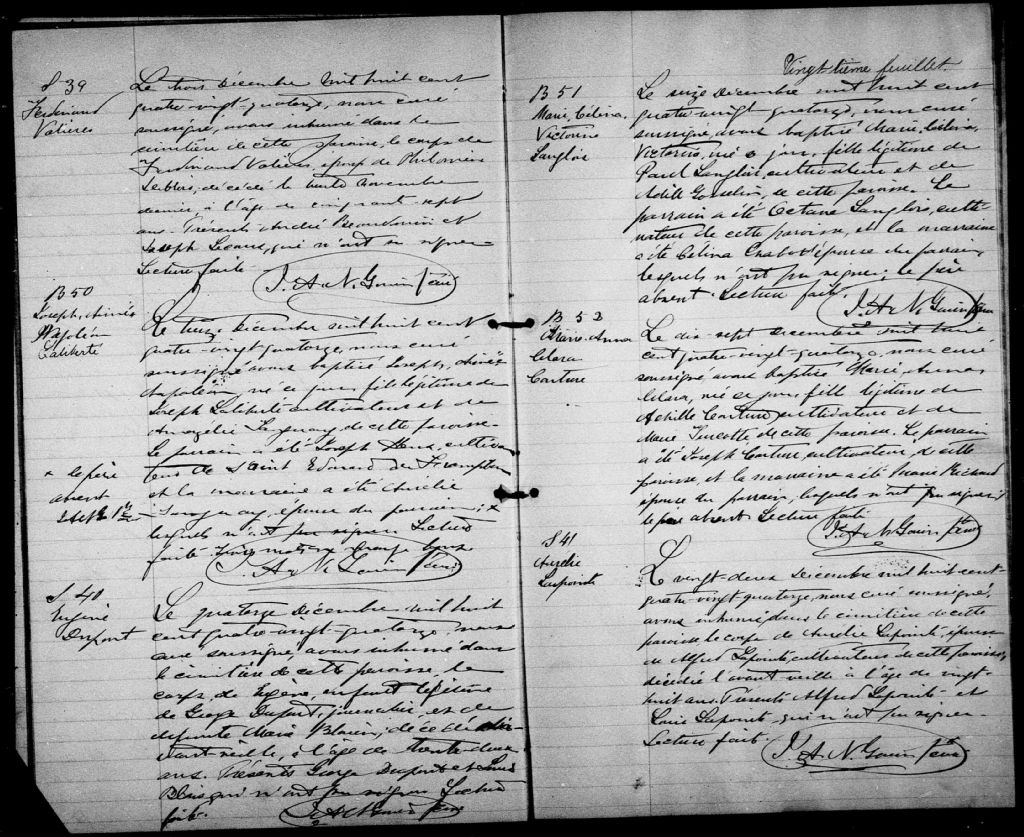 S 39
Ferdinand
Valières
Le trois décembre mil huit cent
quatre-vingt-quatorze, nous curé
soussigné, avons inhumé dans le
cimetière de cette paroisse, le corps de
Ferdinand Valières, époux de Philomène
Leblois, décédé le trente novembre
dernier, à l'âge de cinquante sept
ans. Présents André Beaudouin et
Joseph qui n'ont su signer
Lecture faite
J. A. N. Gouin Ptre
B 50
Joseph, Aimé
Napoléon
Laliberté
Le décembre mil huit cent
quatre-vingt-quatorze, nous curé
soussigné avons baptisé Joseph, Aimé
Napoléon né ce jour, fils légitime de
Joseph Laliberté cultivateur et de
de cette paroisse.
Le parrain a été Joseph cultiva-
teur de Saint Edouard de Frampton
et la marraine a été Aurélie
épouse du parrain, x
lesquels n'ont pu signer. Lecture
faite
J. A. N. Gouin Ptre
x le père
absent
S 40
Eugène
Dupont
Le quatorze décembre mil huit
cent quatre-vingt-quatorze, nous
curé soussigné, avons inhumé dans
le cimetière de cette paroisse le
corps de Eugène, enfant légitime
de George Dupont, journalier et de
défunte Marie décédé
avant veille, à l'âge de trente-deux
ans. Présents George Dupont et Louis
qui n'ont pu signer Lecture
faite.
J. A. N. Gouin Ptre
Vingtième feuillet
B 51
Marie, Célina,
Victoria
Langlois
Le seize décembre mil huit cent
quatre-vingt quatorze, nous curé
soussigné, avons baptisé Marie, Célina,
Victoria, née ce jour, fille légitime de
Paul Langlois, cultivateur et de
Adèle Gosselin, de cette paroisse. Le
parrain a été Octave Langlois, culti-
vateur de cette paroisse, et la marraine
a été Célina Chabot épouse du parrain,
lesquels n'ont pu signer; le père
absent. Lecture faite.
J. A. N. Gouin Ptre
B 52
Marie-Anna
Clara
Couture
Le dix-sept décembre mil huit
cent quatre-vingt-quatorze, nous curé
soussigné avons baptisé Marie, Anna
Clara, née ce jour, fille légitime de
Achille Couture, cultivateur et de
Marie Turcotte, de cette paroisse. Le parrain
a été Joseph Couture, cultivateur, de cette
paroisse, et la marraine a été Marie Richard
épouse du parrain, lesquels n'ont pu signer;
le père absent. Lecture faite
J. A. N. Gouin Ptre
S 41
Aurélie
Lapointe
Le vingt-deux décembre mil huit cent
quatre-vingt quatorze, nous curé soussigné,
avons inhumé dans le cimetière de cette
paroisse le corps de Aurélie Lapointe, épouse
de Alfred Lapointe, cultivateur de cette paroisse,
décédée l'avant veille à l'âge de vingt-
huit ans. Présents Alfred Lapointe et
Louis Lapointe qui n'ont pu signer
Lecture faite.
J. A. N. Gouin Ptre